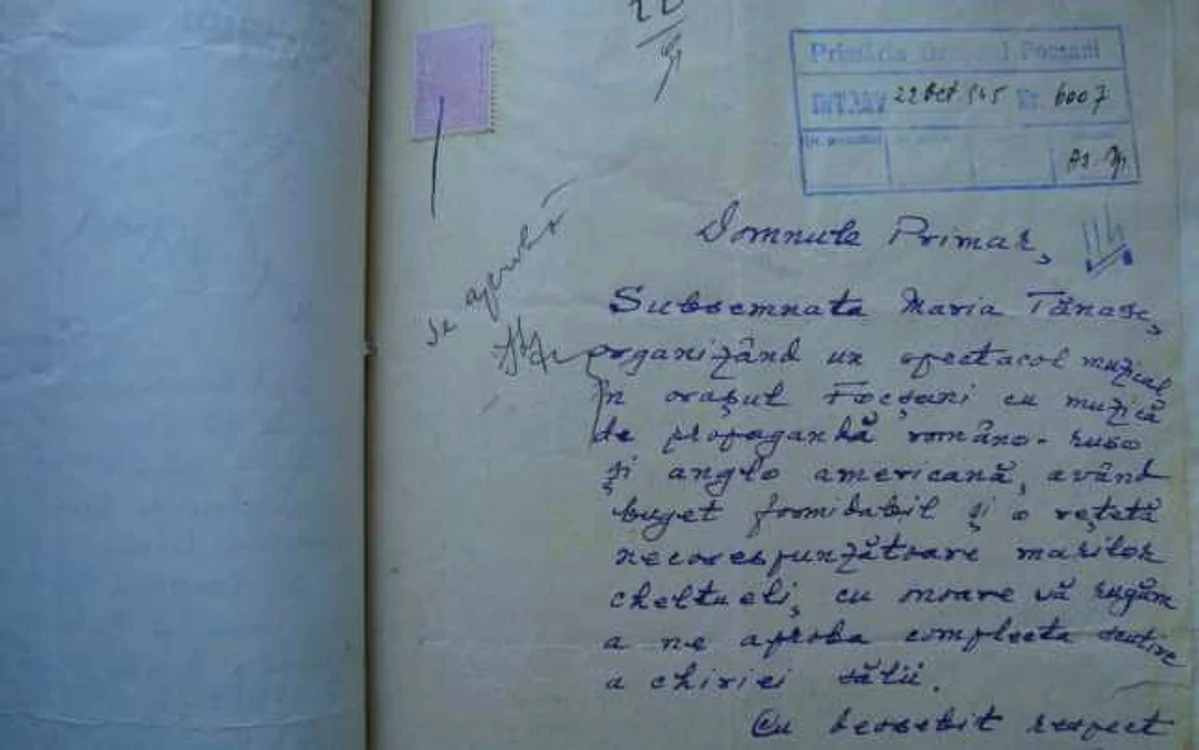 Primăria Orașul Focșani
INTRAT 22 Oct 945 Nr. 6007
Domnule Primar,
se aprobă
Subsemnata Maria Tănase,
organizând un spectacol muzical
în orașul Focșani cu muzică
de propagandă româno-ruso
și anglo americană, având
buget formidabil și o rețetă
necorespunzătoare marilor
cheltueli, cu onoare vă rugăm
a ne aproba complecta scutire
a chiriei sălii.
Cu deosebit respect